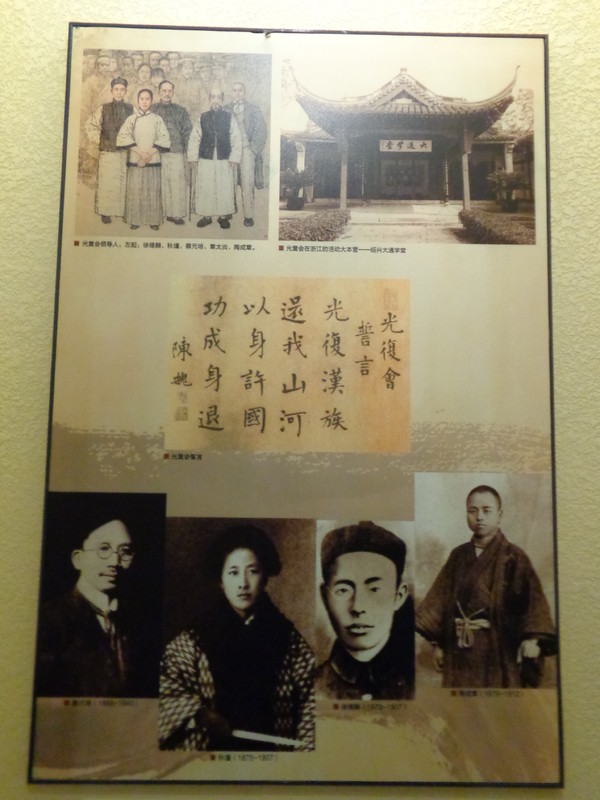 光复会领导人，左起：徐锡麟、秋瑾、蔡元培、章太炎、陶成章。
大通学堂
光复会在浙江的活动大本营——绍兴大通学堂
光復會
誓言
光復漢族
還我山河
以身許國
功成身退
陳魏
光复会誓言
蔡元培（1868-1940）
秋瑾（1875-1907）
徐锡麟（1873-1907）
陶成章（1878-1912）